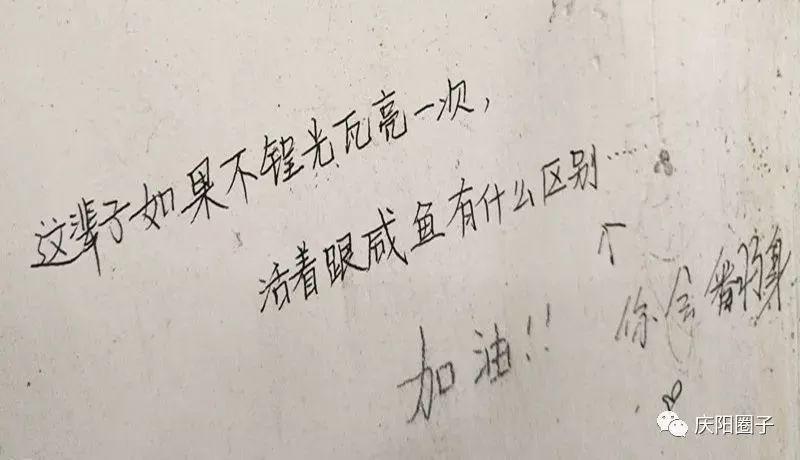 这辈子如果不锃光瓦亮一次，
活着跟咸鱼有什么区别……
↑
你会翻身
加油!!
庆阳圈子